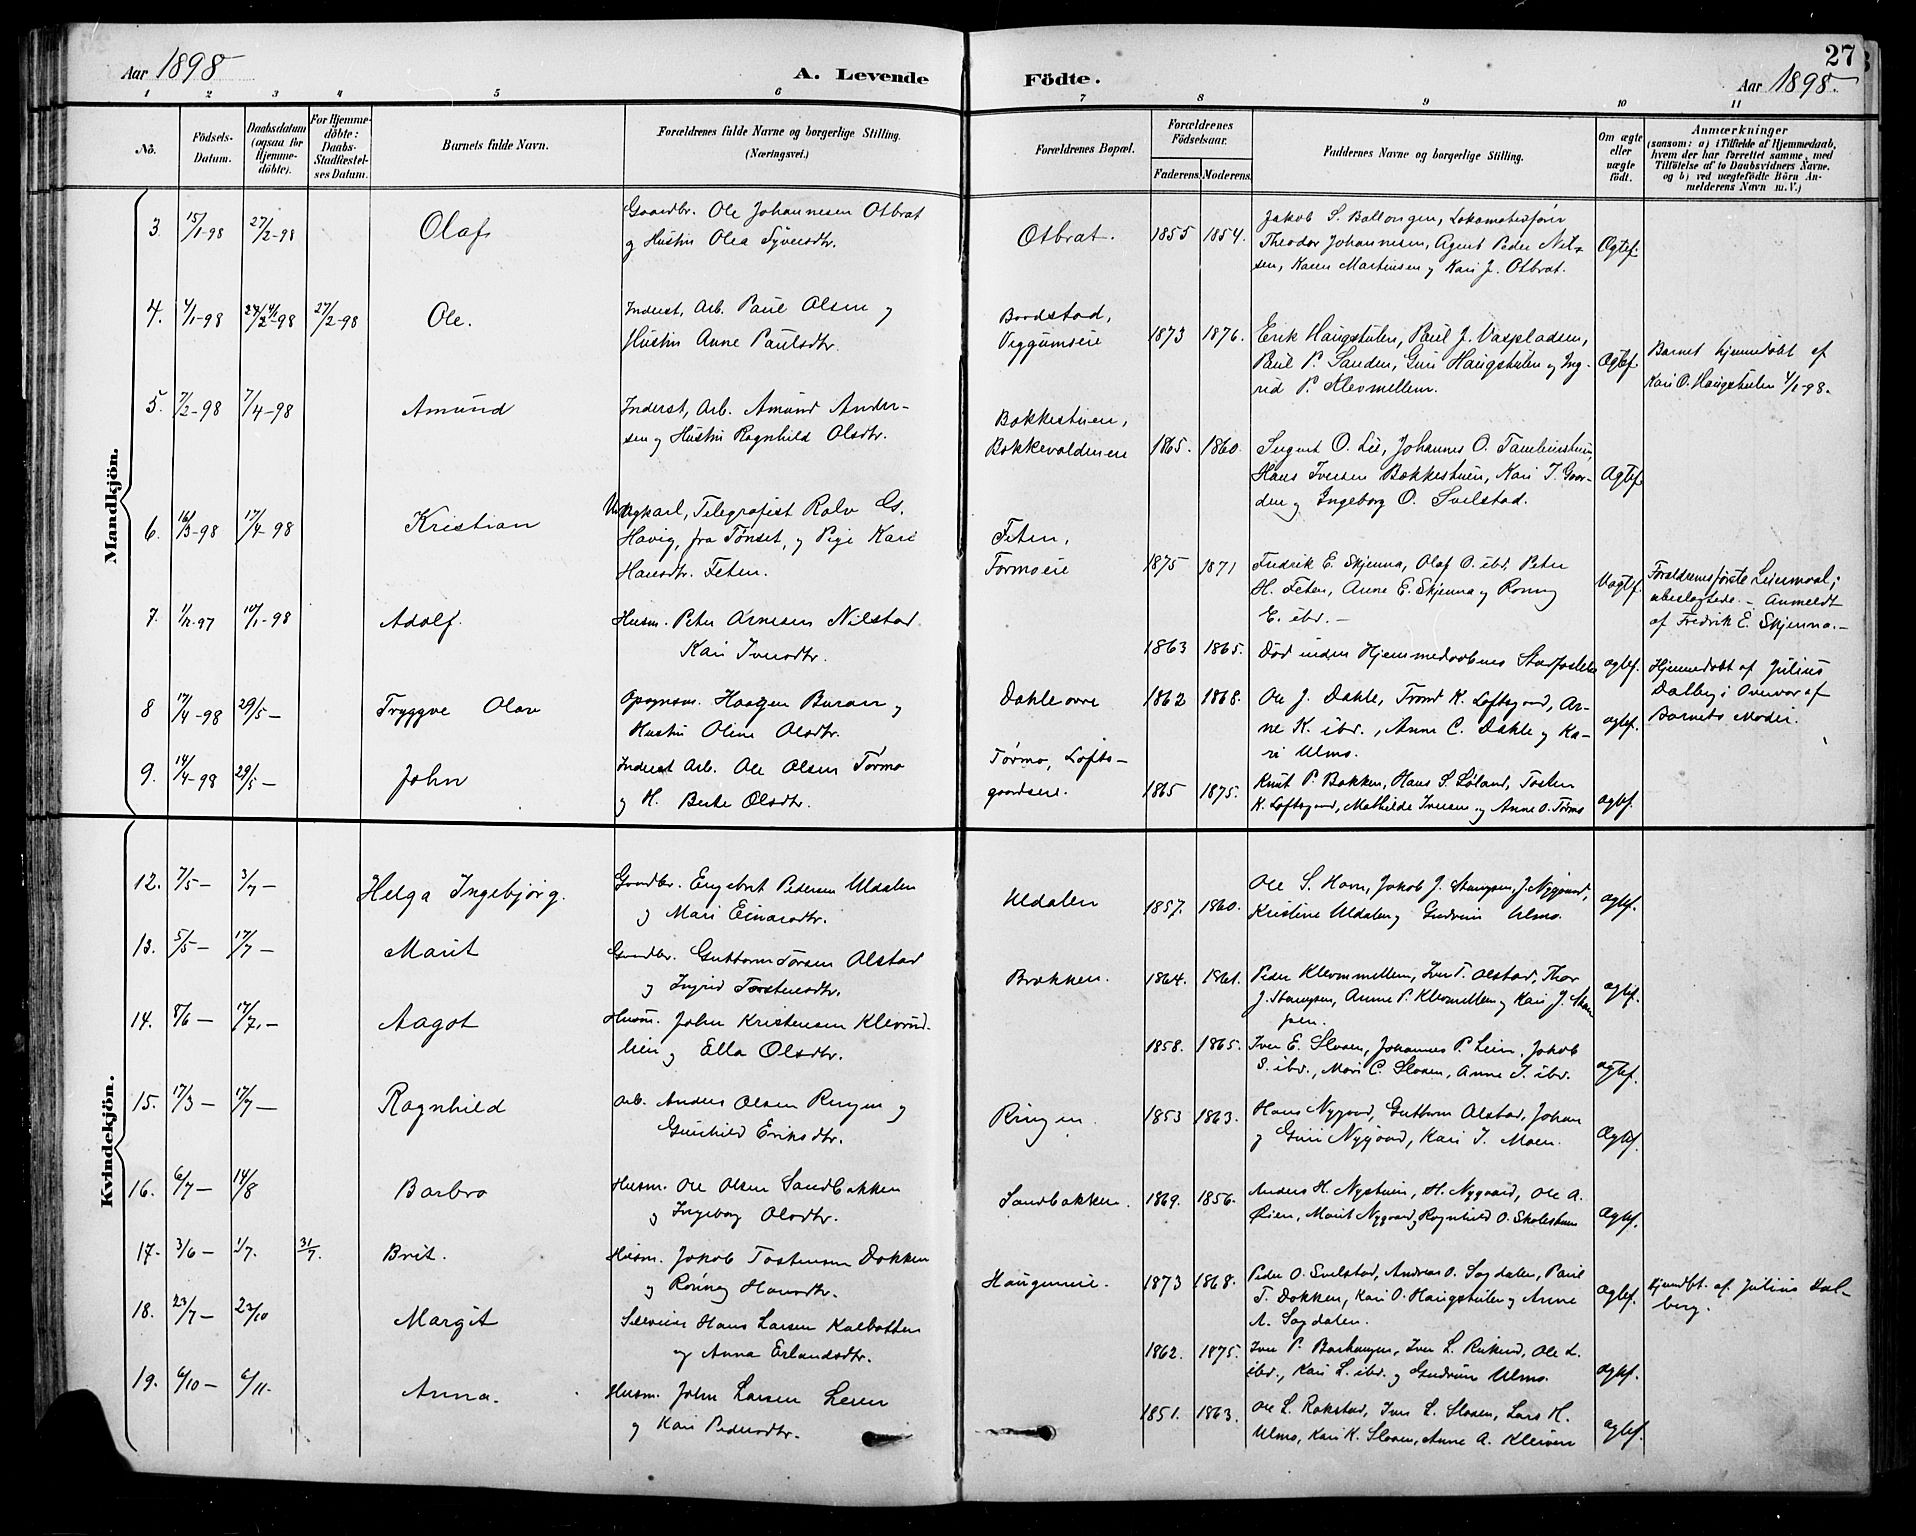 27
Aar 1898
A. Levende
Födte.
Aar 1898.
1 2 3 4 5 6 7 8 9 10 11
No.
Födsels-
Datum.
Daabsdatum
(ogsaa for
Hjemme-
döbte).
For Hjemme-
döbte:
Daabs-
Stadfæstel-
ses Datum.
Barnets fulde Navn.
Forældrenes fulde Navne og borgerlige Stilling.
(Næringsvei.)
Forældrenes Bopæl.
Forældrenes
Födselsaar.
Faderens. Moderens.
Faddernes Navne og borgerlige Stilling.
Om ægte
eller
uægte
födt.
Anmærkninger
(saasom: a) i Tilfælde af Hjemmedaab,
hvem der har forrettet samme, med
Tilföielse af to Daabsvidners Navne.
og b) ved uægtefödte Börn An-
melderens Navn m. V.)
Mandkjön.
3. 15/1-98 27/2-98 Olaf
Gaardbr. Ole Johannesen Otbrat
og Hustru Olea Syversdtr.
Otbrat. 1855 1854.
Jakob S. Ballongen, Lokomotivfører
Theodor Johannesen, Agent Peder Nil-
sen, Karen Martinsen og Kari J. Otbrat.
Ægtef.
4. 4/1-98 27/2-98 Ole.
Inderst, Arb. Paul Olsen og
Hustru Anne Paulsdtr.
Viggumseie 1873 1876.
Erik Haugstulen, Paul J. Vaspladsen,
Paul P. Sanden, Guri Haugstulen og Ing-
rid P. Klevmellem.
Ægtef.
Barnet hjemmedøbt af
Kari O. Haugstulen 4/1-98.
5. 7/2-98 7/4-98 Amund
Inderst, Arb. Amund Ander-
sen og Hustru Ragnhild Olsdtr.
Bakkestuen,
1865. 1860.
O. Lie, Johannes O.
Hans Iversen Bækkestuen, Kari I. Gaar-
den og Ingeborg O. Svelstad.
Ægtef.
6. 16/3-98 17/4-98 Kristian
Ungkarl, Telegrafist Rolv Gs.
Havig, fra Tønset, og Pige Kari
Hansdtr. Feten.
Feten,
Tormoeie 1875 1871
Fredrik E. Skjenna, Olaf O. ibd, Peter
H. Feten, Anne E. Skjenna og Ronnug
E. ibd. -
Uægtef.
Forældrenes første Leiermaal;
ubeslægtede. - Anmeldt
af Fredrik E. Skjenna. -
7. 10/1-98 Adolf.
Husm. Peter Arnesen Nilstad
Kari Iversdtr.
1863 1865.
Død inden Hjemmedaabens Stadfæstelse
ægtef.
Hjemmedøbt af Julius
Dalberg i Overvær af
Barnets Moder.
8 17/4-98 29/5 - Tryggve Olav
Opsynsm. Haagen Buraas og
Hustru Oline Olsdtr.
Dahle øvre 1862 1868.
Ole J. Dahle, Trond K. Loftsgaard, Ar-
ne K. ibd., Anne C. Dahle og Ka-
ri Ulmo.
ægtef.
9. 14/4-98 29/5 - John
Inderst Arb. Ole Olsen Tørmo
og H. Berte Olsdtr.
Tørmo, Lofts-
gaardseie. 1865 1875.
Knut P. Bakken, Hans S. Løland, Tosten
K. Loftsgaard, Mathilde Iversen og Anne O. Tørmo
ægtef.
Kvindekjön.
12. 7/5 - 3/7 - Helga Ingebjørg.
Gaardbr. Engebret Pedersen Uldalen
og Mari Einarsdtr.
Uldalen 1857. 1860.
Ole S. Horn, Jakob J. Stampen, J. Nygaard,
Kristine Uldalen og Gudrun Ulmo.
ægtef.
13. 5/5 - 17/7 - Marit
Gaardbr. Guttorm Torsen Alstad
og Ingrid Tostensdtr.
Brækken. 1864. 1861.
Peder Klevmellem, Iver T. Alstad, Thor
J. Stampen, Anne P. Klevmellem og Kari J. Stam
pen.
ægtef.
14. 8/6 - 17/7. - Aagot
Husm. John Kristensen Klevrud-
lien og Ella Olsdtr.
1858. 1865.
Iver E. Sloaen, Johannes P. Lien, Jakob
S. ibd., Mari C. Sloaen, Anne I. ibd.
ægtef.
15. 17/3 - 17/7 - Ragnhild
Arb. Anders Olsen Ringen og
Gunhild Eriksdtr.
Ringen. 1853 1863.
Hans Nygaard, Guttorm Alstad, Johan
og Guri Nygaard, Kari I. Moen.
Ægtef.
16. 6/7 - 14/8 Barbro
Husm. Ole Olsen Sandbakken
og Ingeborg Olsdtr.
Sandbakken. 1869. 1856.
Anders H. Nystuen, H. Nygaard, Ole A.
Øien, Marit Nygaard, Ragnhild O. Skolestuen
Ægtef.
17. 3/6 - 1/7. 31/7. Brit.
Husm. Jakob Tostensen Dokken
og Rønnug Hansdtr.
Haugeneie. 1873 1868.
Peder O. Svelstad, Andreas O. Sagdalen, Paul
T. Dokken, Kari O. Haugstulen og Anne
A. Sagdalen.
Ægtef.
hjemdbt. af Julius Dal-
berg.
18. 23/7 - 23/10 Margit
Hans Larsen Kalbotten
og Anna Erlandsdtr.
1862. 1875.
Iver P. Barhaugen, Iver L. Ole L.
ibd., Kari L. ibd. og Gudrun Ulmo.
ægtef.
19. 6/10 - 6/11. Anna.
Husm. John Larsen Leren
og Kari Pedersdtr.
1851. 1863.
Ole L. Rakstad, Iver L. Sloaen, Lars H.
Ulmo, Kari K. Sloaen, Anne A. Kleiven
ægtef.